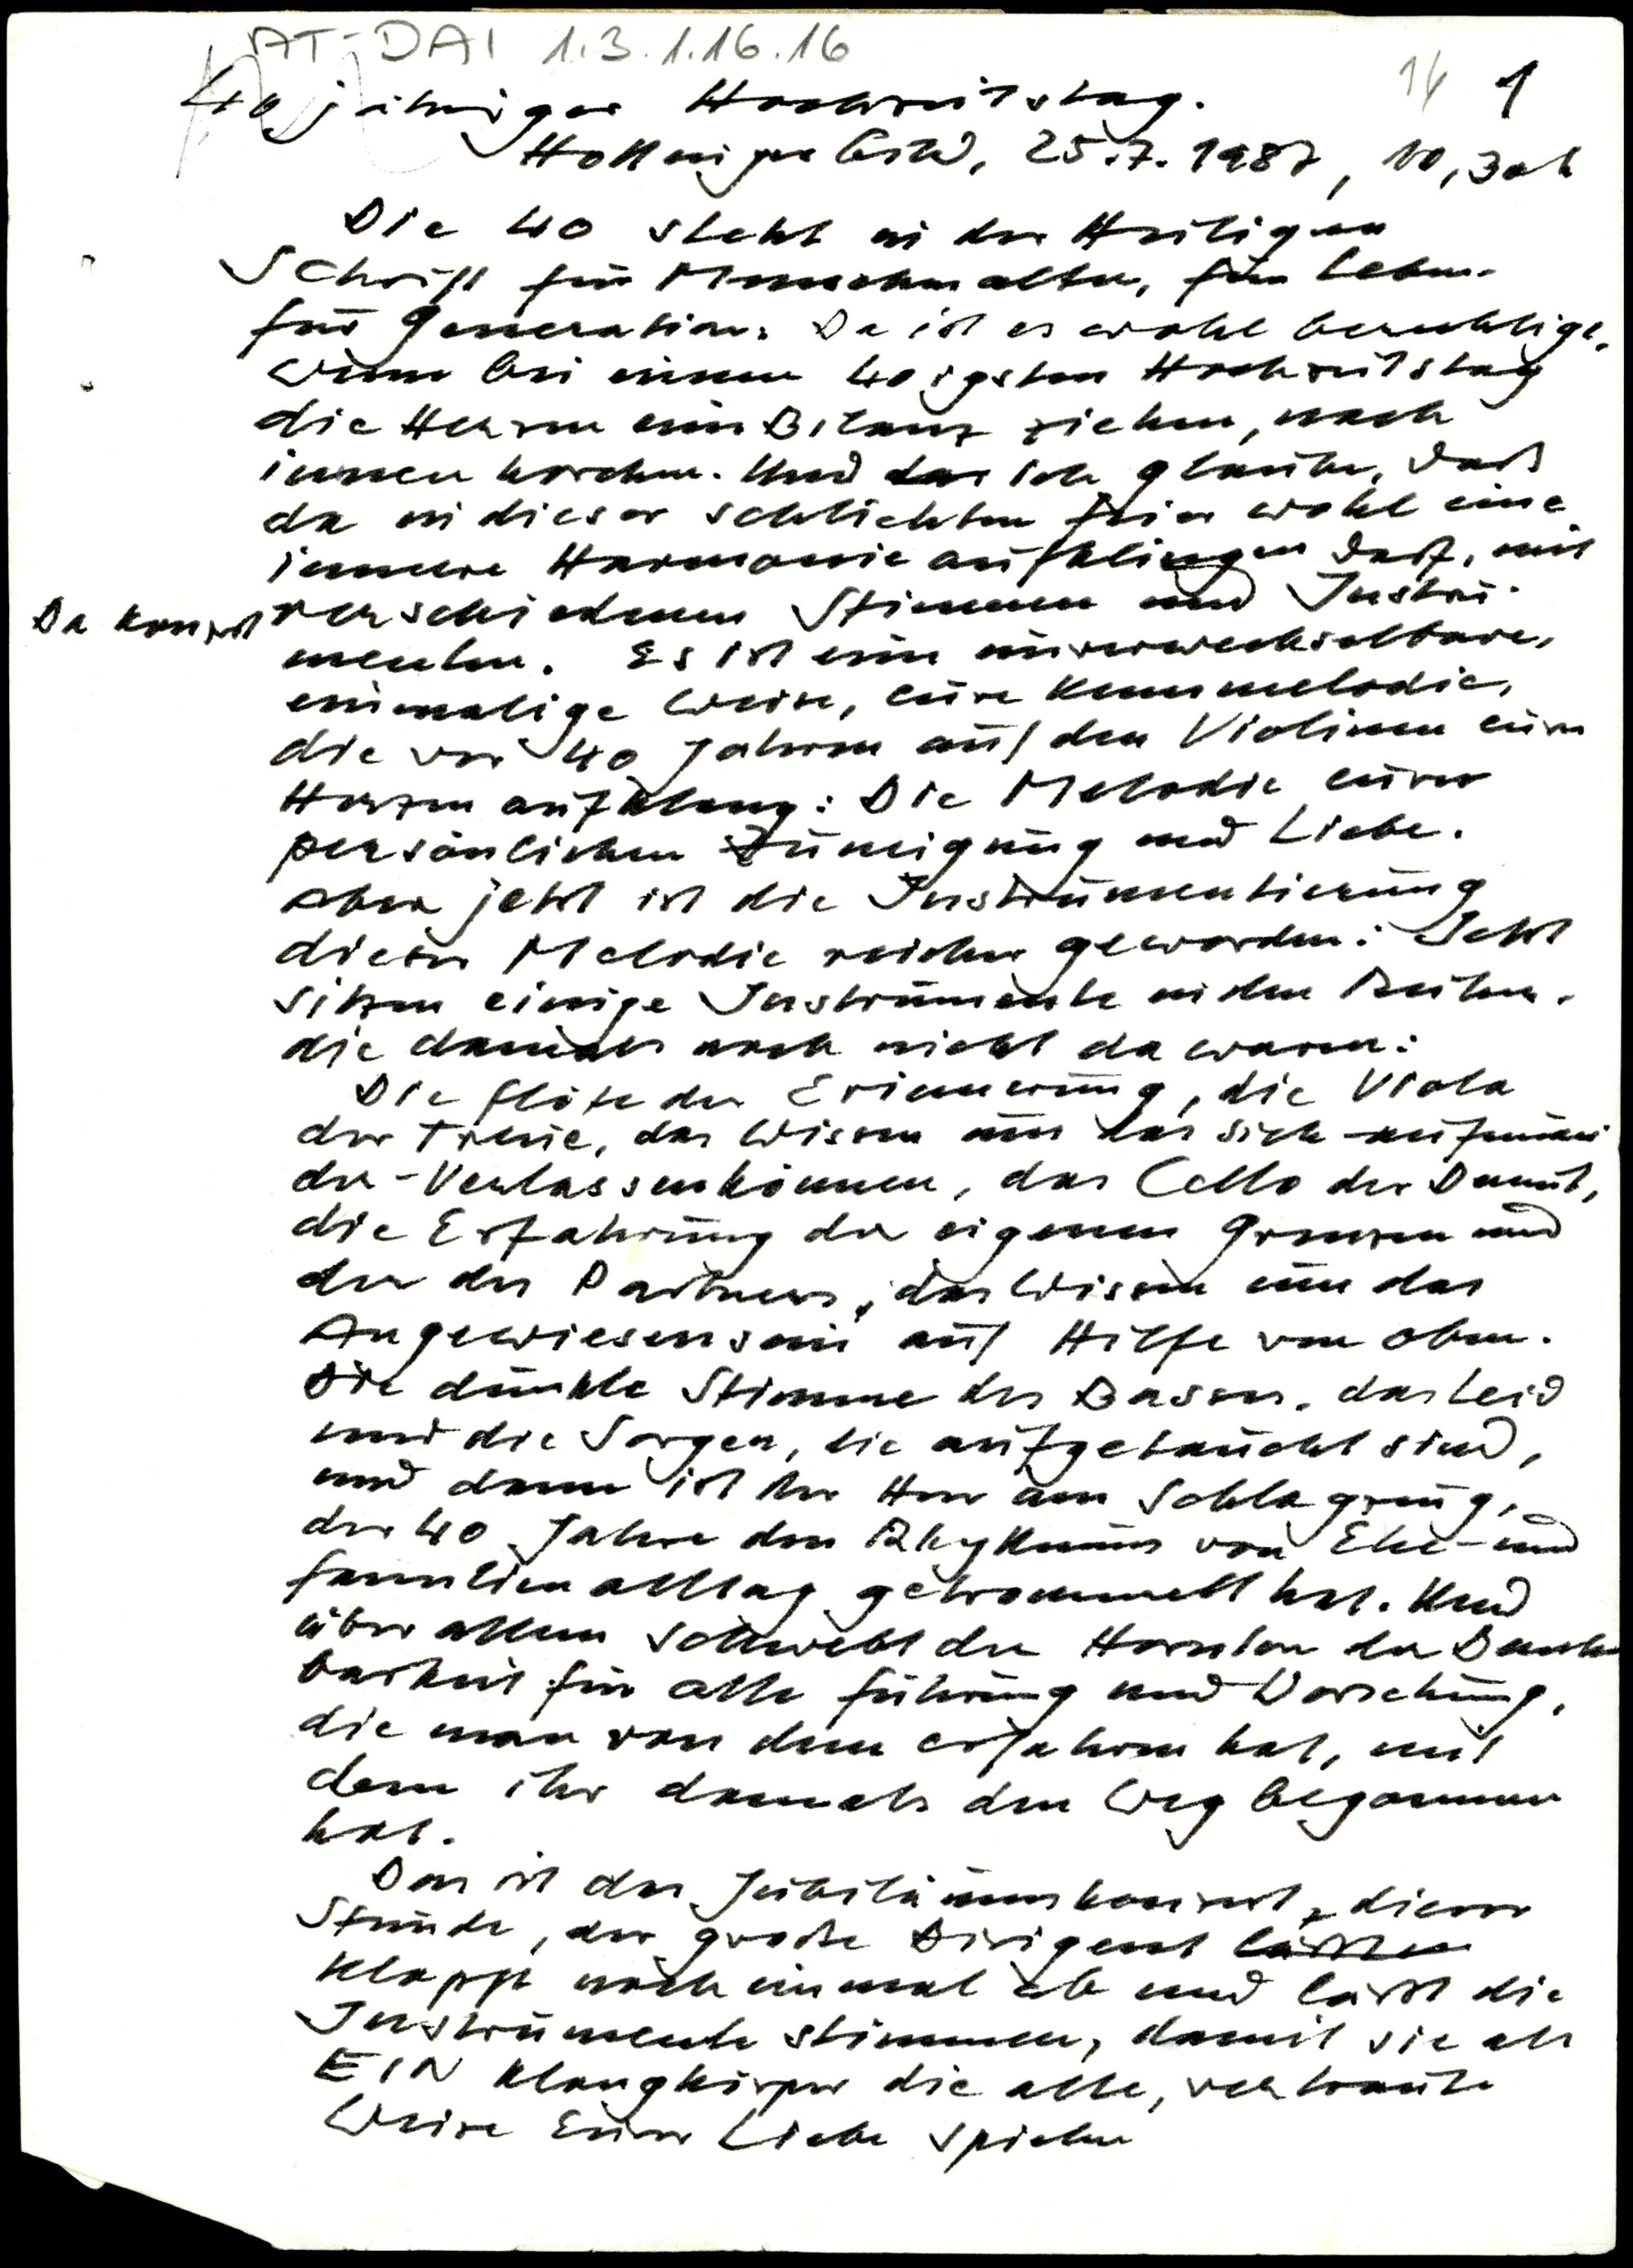 AT-DAI 1.3.1.16.16
14 1
40 jähriger Hochzeitstag.
25.7.1987, 10,30h
Die 40 steht in der Heiligen
Schrift für Menschenalter, für Leben,
für Generation. Da ist es wohl berechtigt,
wenn bei einem 40igsten Hochzeitstag
die Herzen eine Bilanz ziehen, nach
innen horchen. Und das ich glaube, daß
da in dieser schlichten Feier wohl eine
innere Harmonie aufklingen darf, mit
Da Konzert
verschiedenen Stimmen und Instru-
menten. Es ist eine unverwechselbare,
einmalige Weise, eure Kennmelodie,
die vor 40 Jahren auf den Violinen eurer
Herzen aufklang: Die Melodie eurer
persönlichen Zuneigung und Liebe.
Aber jetzt ist die Instrumentierung
dieser Melodie reicher geworden: Jetzt
sitzen einige Instrumente in den Reihen,
die damals noch nicht da waren:
Die Flöte der Erinnerung, die Viola
der Treue, das Wissen um das sich-aufeinan
der-Verlassenkönnen, das Cello der Demut,
die Erfahrung der eigenen Grenzen und
der des Partners, das Wissen um das
Angewiesensein auf Hilfe von oben.
Die dunkle Stimme des Basses, das Leid
und die Sorgen, die aufgetaucht sind,
und dann ist der Herr am Schlagzeug,
der 40 Jahre den Rhythmus von Ehe- und
Familienalltag getrommelt hat. Und
über allem schwebt der Hornton der Dank
barkeit für alle Führung und Vorsehung,
die man von dem erfahren hat, mit
dem ihr damals den Weg begonnen
hat.
Das ist das Jubiläumskonzert dieser
Stunde, der große Dirigent läßt
klopft noch einmal ab und läßt die
Instrumente stimmen, damit sie als
EIN Klangkörper die alte, vertraute
Weise Eurer Liebe spielen